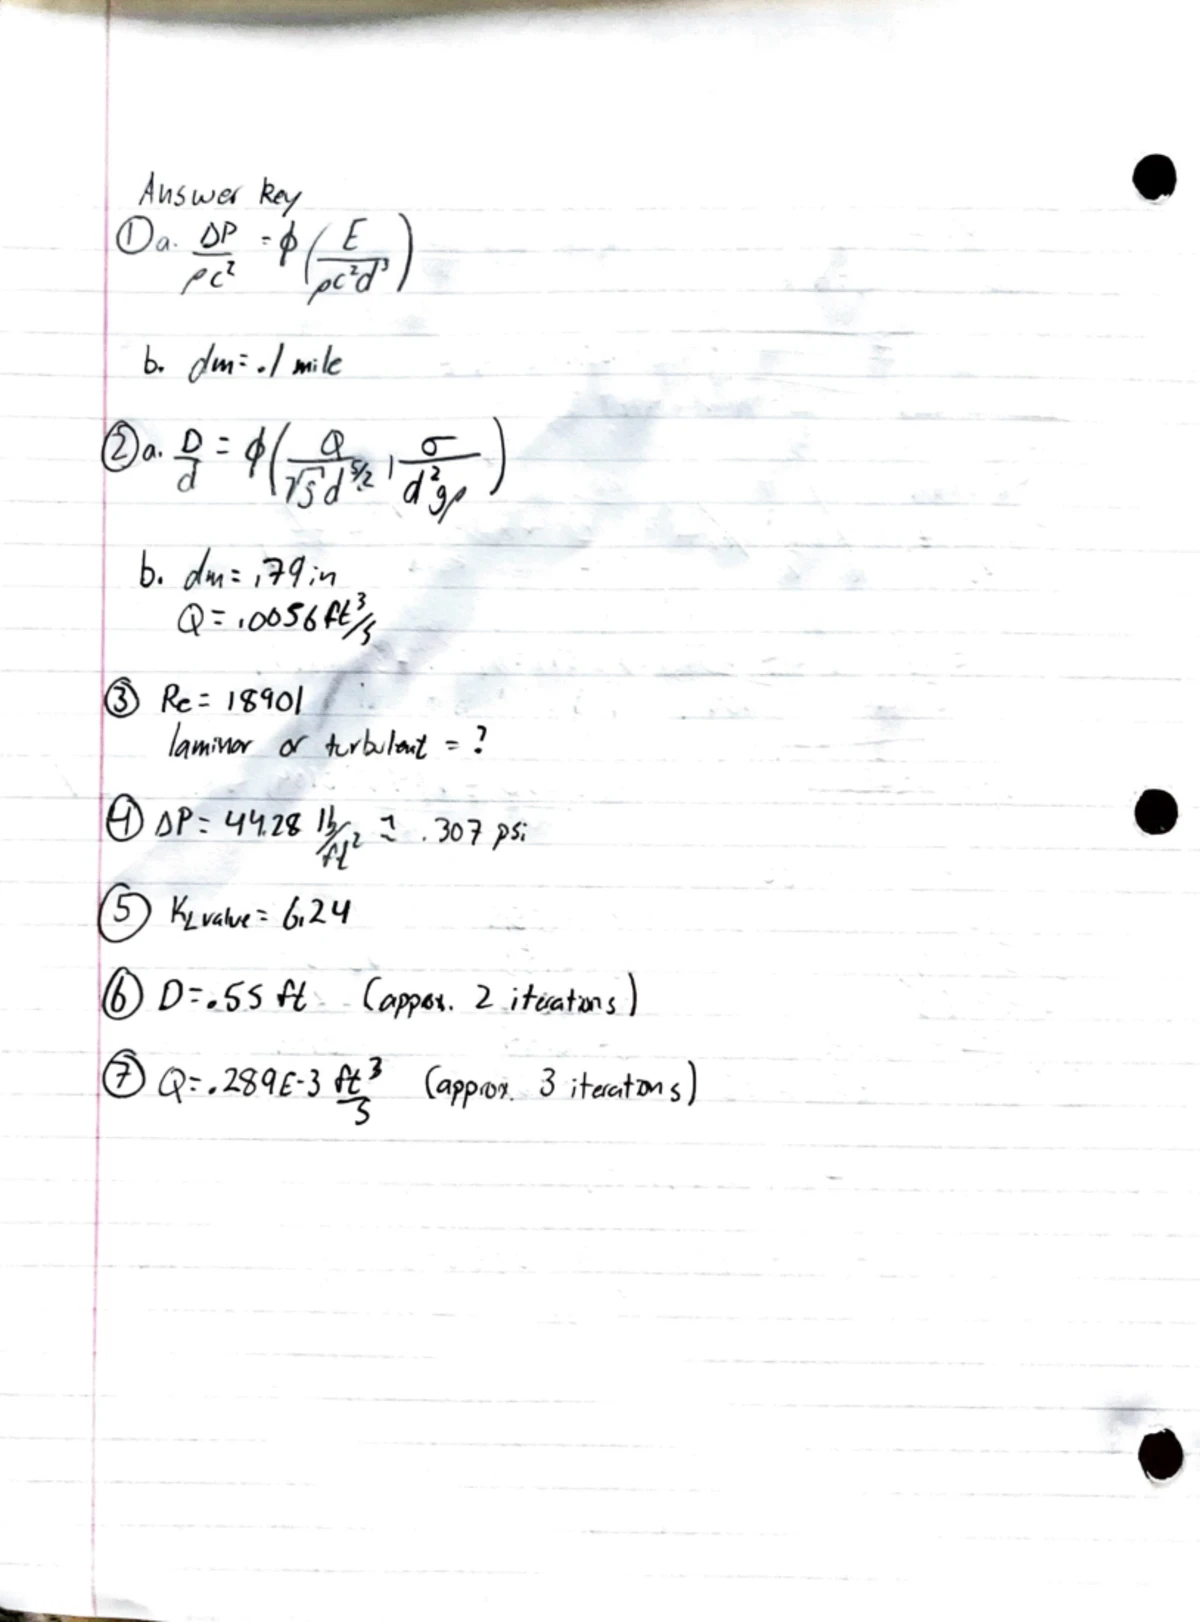 Answer key
① a. ΔP/ρc² = ϕ(E/ρc²d³)
b. dm= .1 mile
② a. D/d = ϕ(Q/√g d^5/2, σ/d²gρ)
b. dm= .79 in
Q= .0056 ft³/s
③ Re= 18901
laminar or turbulent = ?
④ ΔP= 44.28 lb/ft² ≈ .307 psi
⑤ KL value= 6.24
⑥ D=.55 ft (approx. 2 iterations)
⑦ Q=.289E-3 ft³/s (approx. 3 iterations)